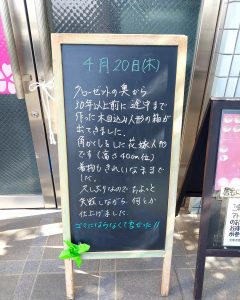 4月20日(木)
クローゼットの奥から
10年以上前に途中まで
作った木目込み人形の箱が
出てきました。
角かくしをした花嫁人形
です(高さ40cm位)
着物もきれいなままで
した。
久しぶりなのでちょっと
失敗しながら何とか
仕上げました。
ゴミにならなくてよかった!!